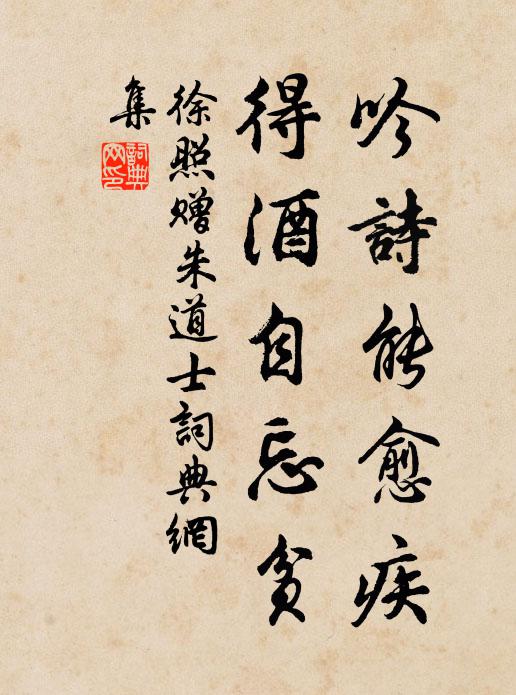 吟詩能愈疾
得酒自忘貧
徐照贈朱道士詞典網
集
詞典
网印